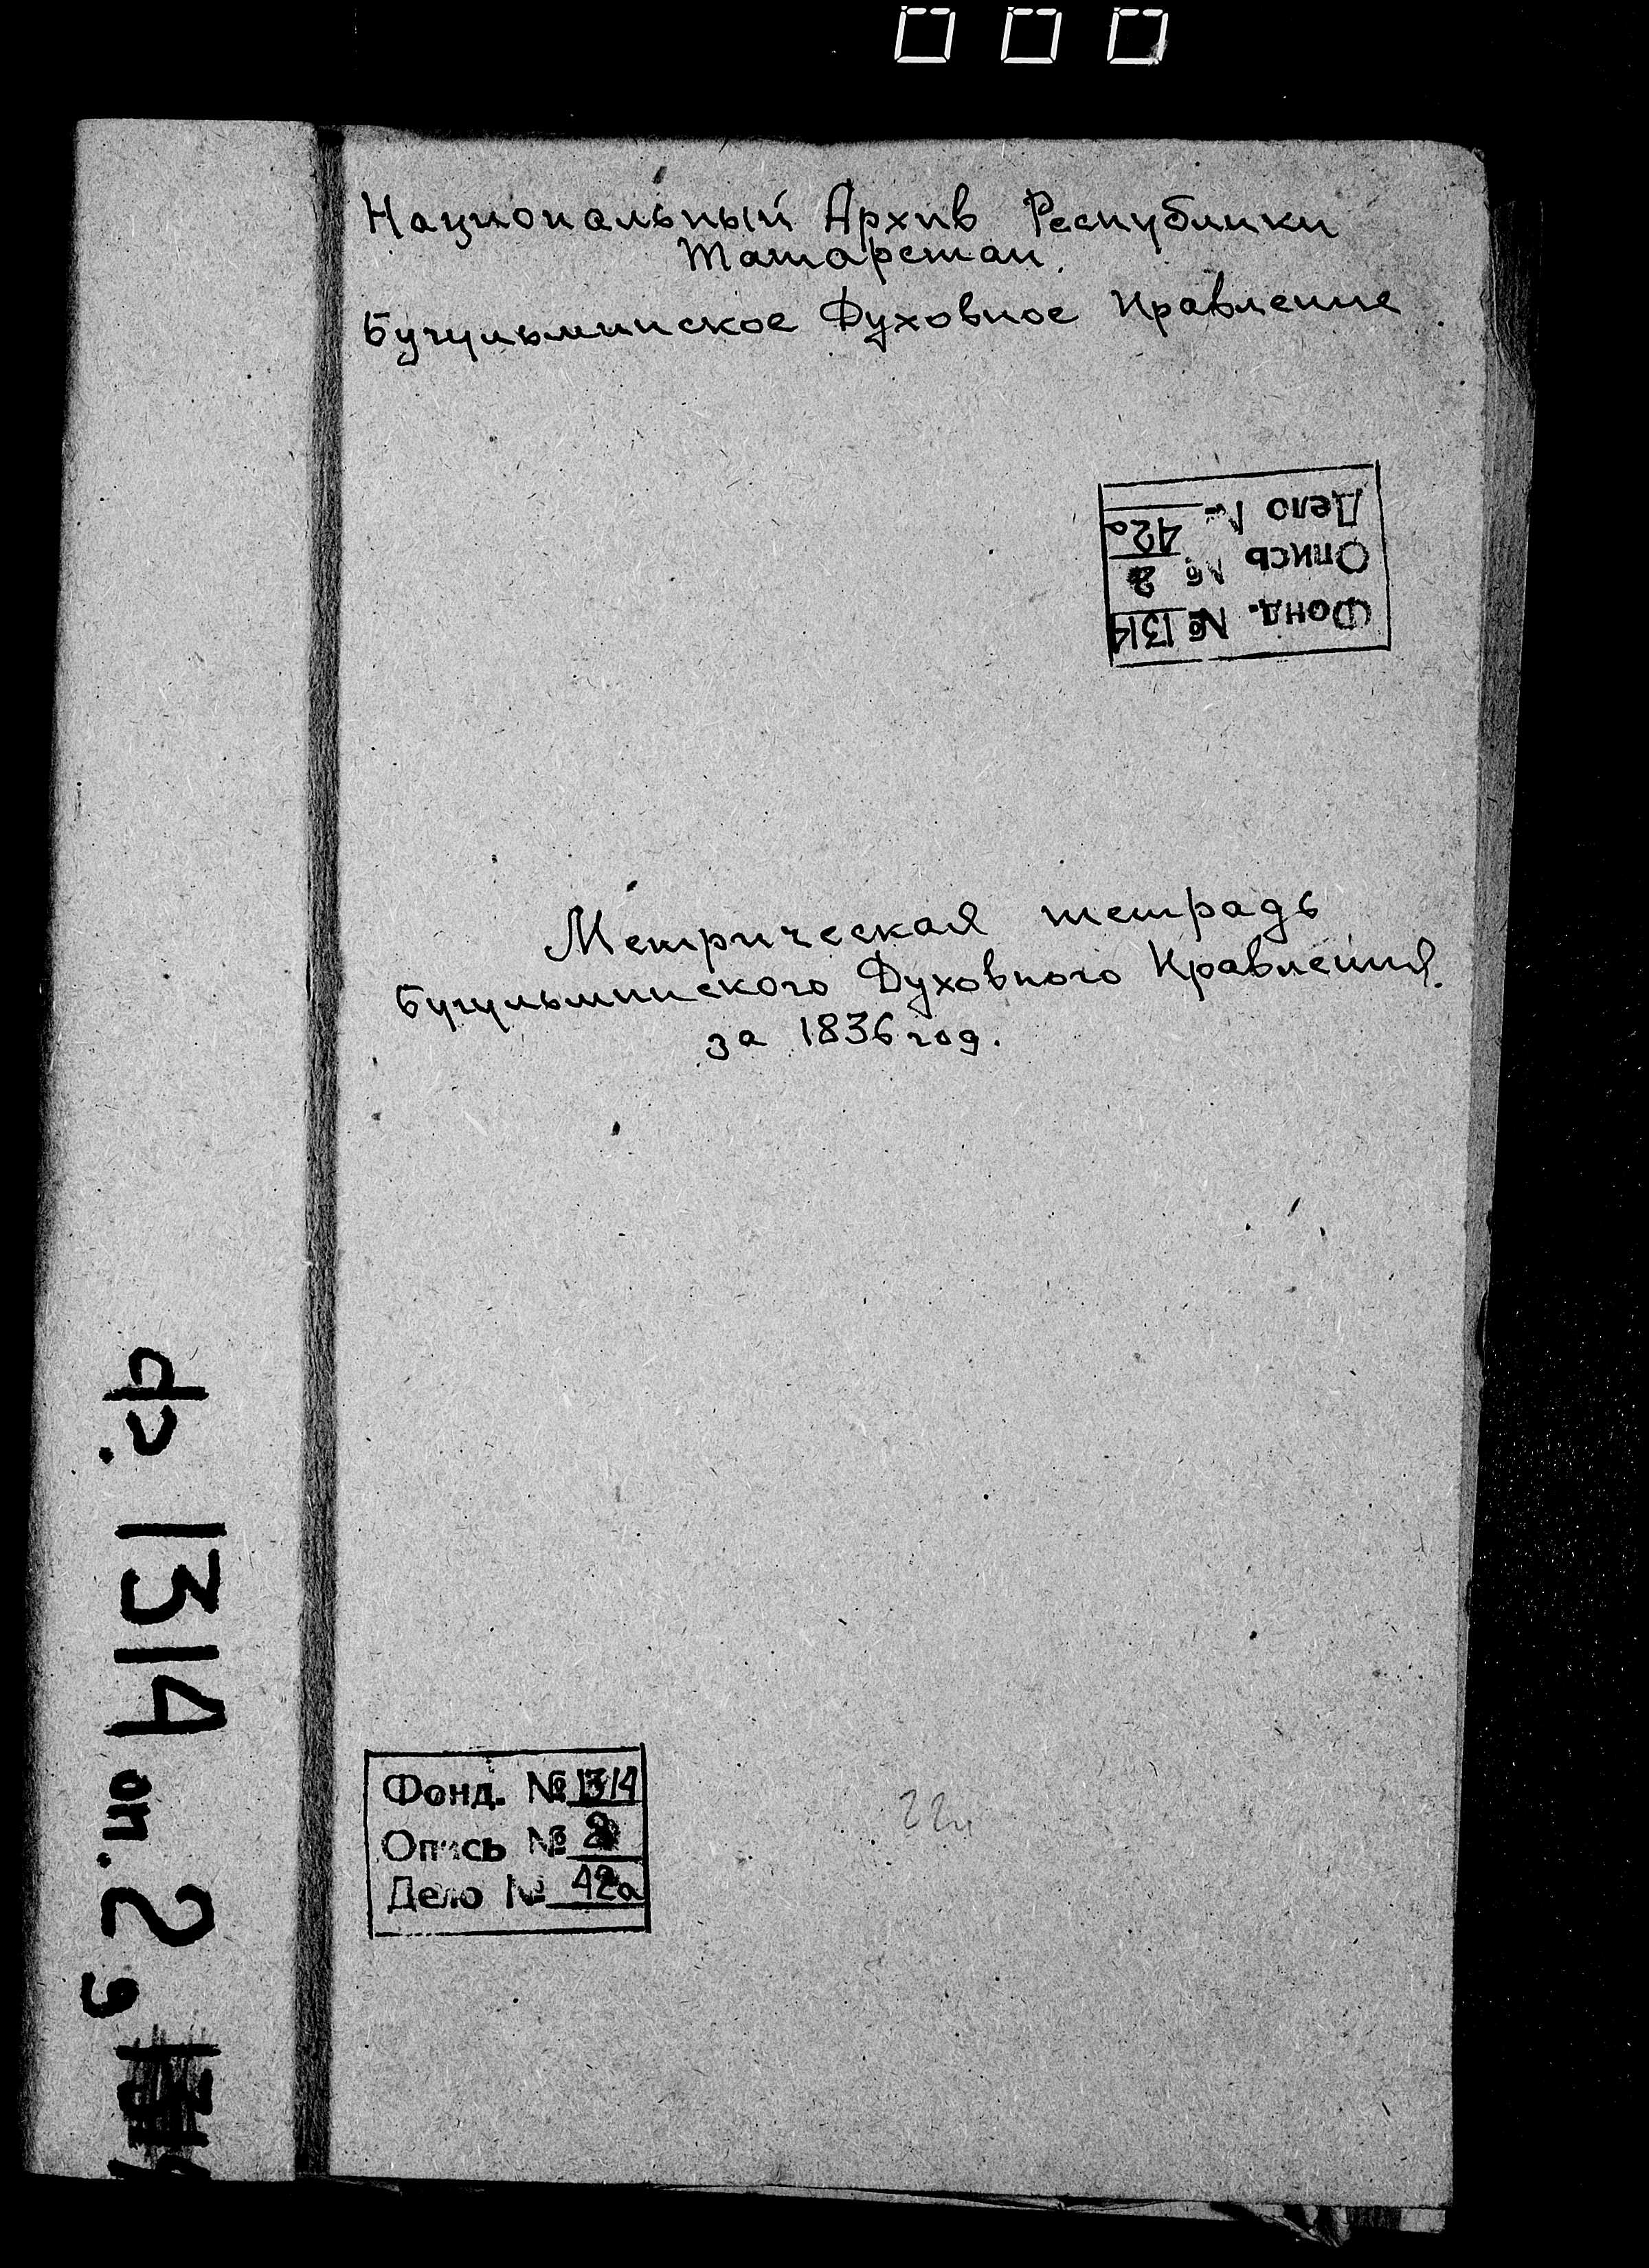 Национальный Архив Республики
Татарстан.
Бугульминское Духовное Правление.
Фонд. № 1314
Опись № 2
Дело № 42а
Метрическая тетрадь
Бугульминского Духовного Правления.
за 1836 год.
Фонд. № 1314
Опись № 2
Дело № 42а
ф. 1314 оп. 2 д